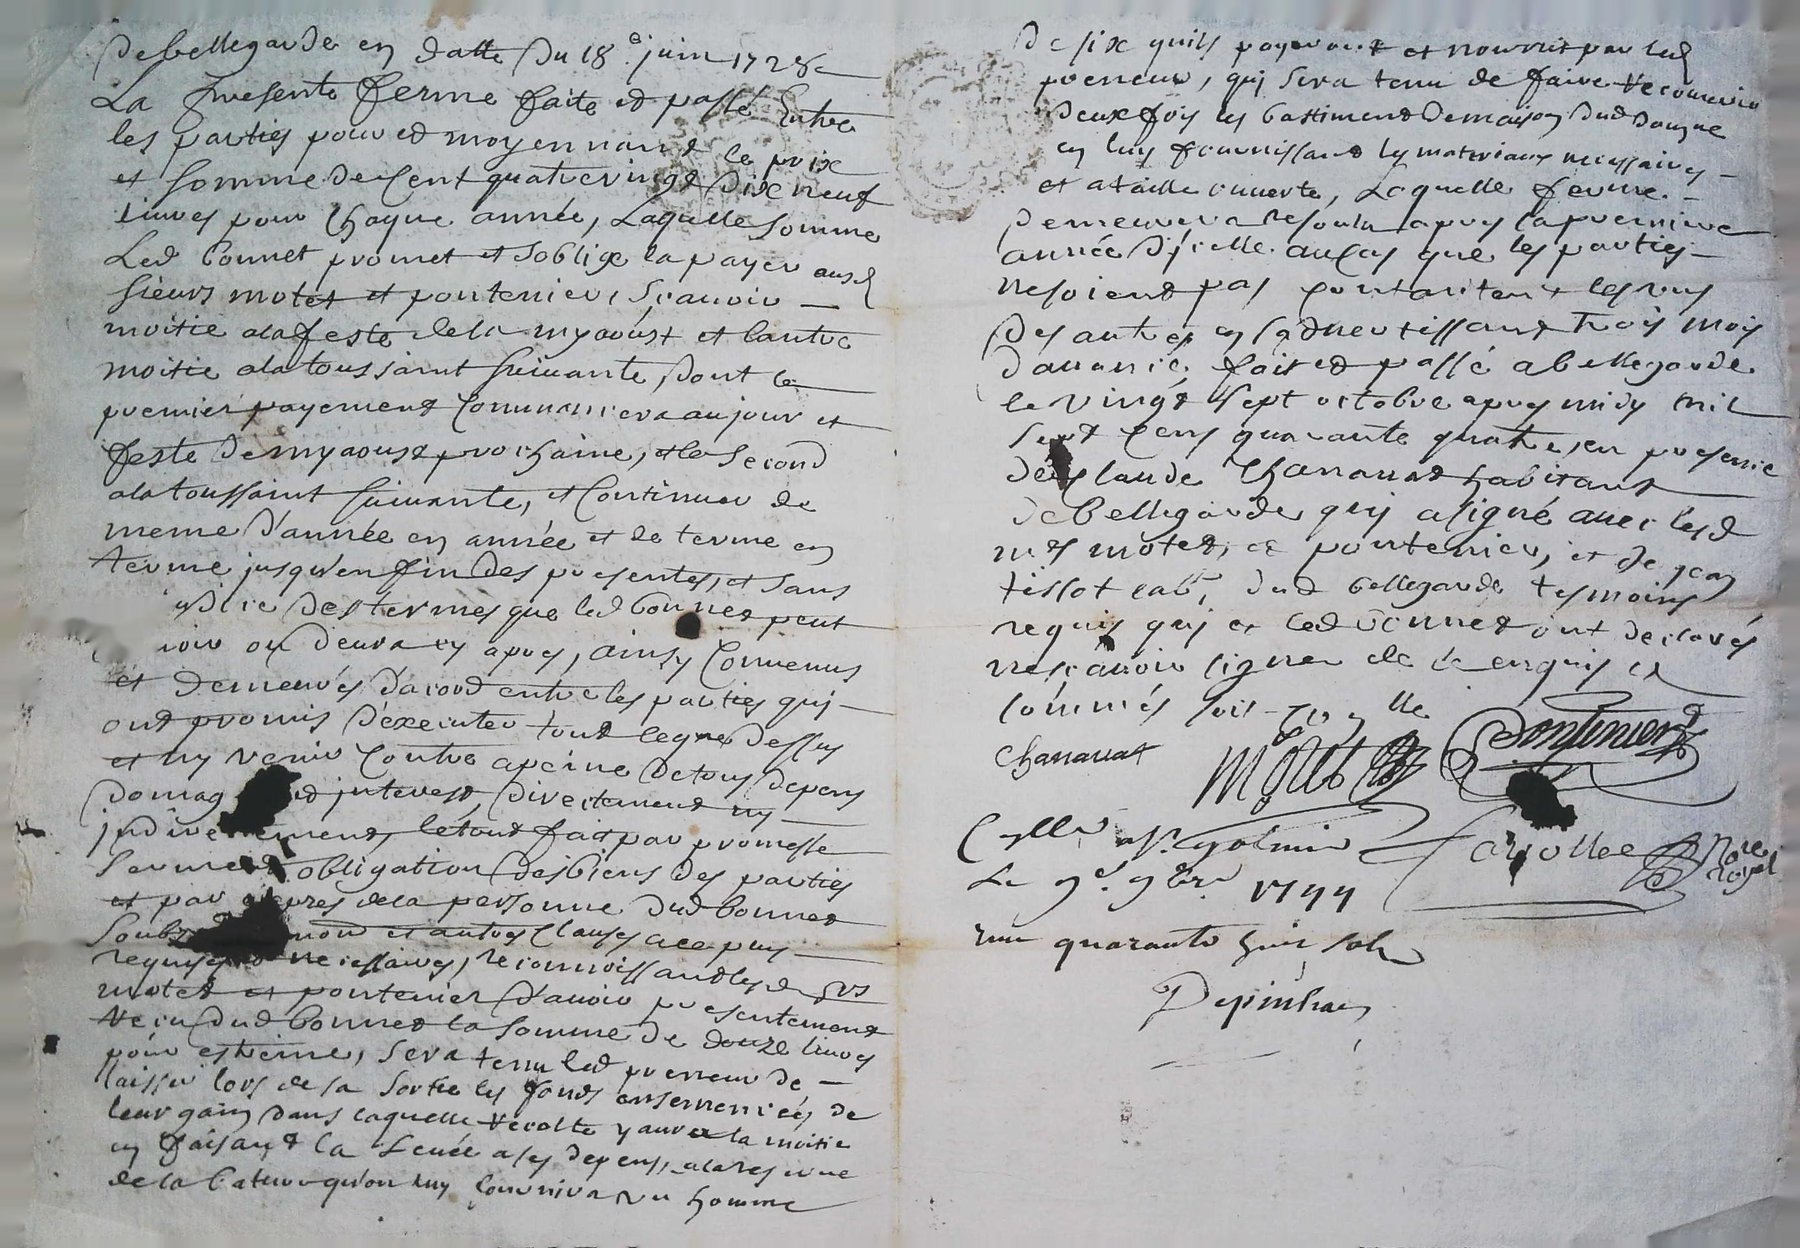 de bellegarde en datte du 18e juin 1728
La presente ferme faite et passé Entre
les parties pour et moyennant le prix
et somme de Cent quatrevingt dix neuf
livres pour Chaque année, Laquelle somme
Led bonnet promet et soblige la payer ausd
sieurs motet et pontenier, Sçauoir
moitie alafeste dela myaoust et lautre
moitie alatoussaint suiuante, dont le
premier payement Commancera aujour et
feste demyaoust prochaine, et le second
alatoussaint suiuante, et Continuer de
meme d'année en année et de terme en
terme jusqu'en fin des presentes, et sans
des termes que led bonnet peut
ou deura cy apres, ainsy Conuenus
et demeurés d'acord entre les parties qui
ont promis d'executer tout leque dessus
et ny venir Contre apeine de tous depens
domag et interest, directement ny
indire tement le tout fait par promesse
serment obligation des biens des parties
et par de la personne dud bonnet
Soubz et autres Clauses ace puy
requises necessaires, reconnoissant lesd srs
motet et pontenier d'auoir presentement
receu dud bonnet la somme de douze liures
pour estreine, sera tenu led preneur de
laisser lors de sa sortie les fonds ensemencés de
leur gain dans laquelle recolte y aura la moitie
en faisant la Leuée a ses depens, alareserue
de la bature qu'on luy fournira un homme
de six quils payeront et nourrit par led
preneur, qui sera tenu de faire recouurir
deux fois les bastiment de maison dud domaine
en luy fournissant les materiaux necessaires
et ataille ouuerte, Laquelle ferme
demeurera resoulu apres la premiere
année d'icelle aucas que les parties
ne soient pas Contantent les uns
des autres en s'aduertissant trois mois
d'auance, fait et passé a bellegarde
le vingt sept octobre apres midy mil
sept Cens quarante quatre, en presence
de Claude Chanauat habitant
de bellegarde qui a signé auec lesd
mrs motet, et pontenier, et de jean
tissot labr dud bellegarde tesmoins
requis qui et led bonnet ont declarés
ne scauoir signer de ce enquis et
sommés soit
Chanauat
Motet
Pontenier
Le 9e 9bre 1744
quarante huit sols
Nore
royal